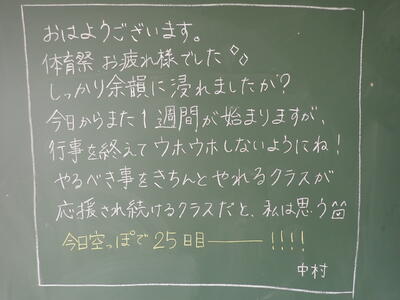 おはようございます。
体育祭 お疲れ様でした
しっかり余韻に浸れましたか?
今日からまた1週間が始まりますが、
行事を終えてウホウホしないようにね!
やるべき事をきちんとやれるクラスが
応援され続けるクラスだと、私は思う
今日空っぽで25日目――!!!!
中村